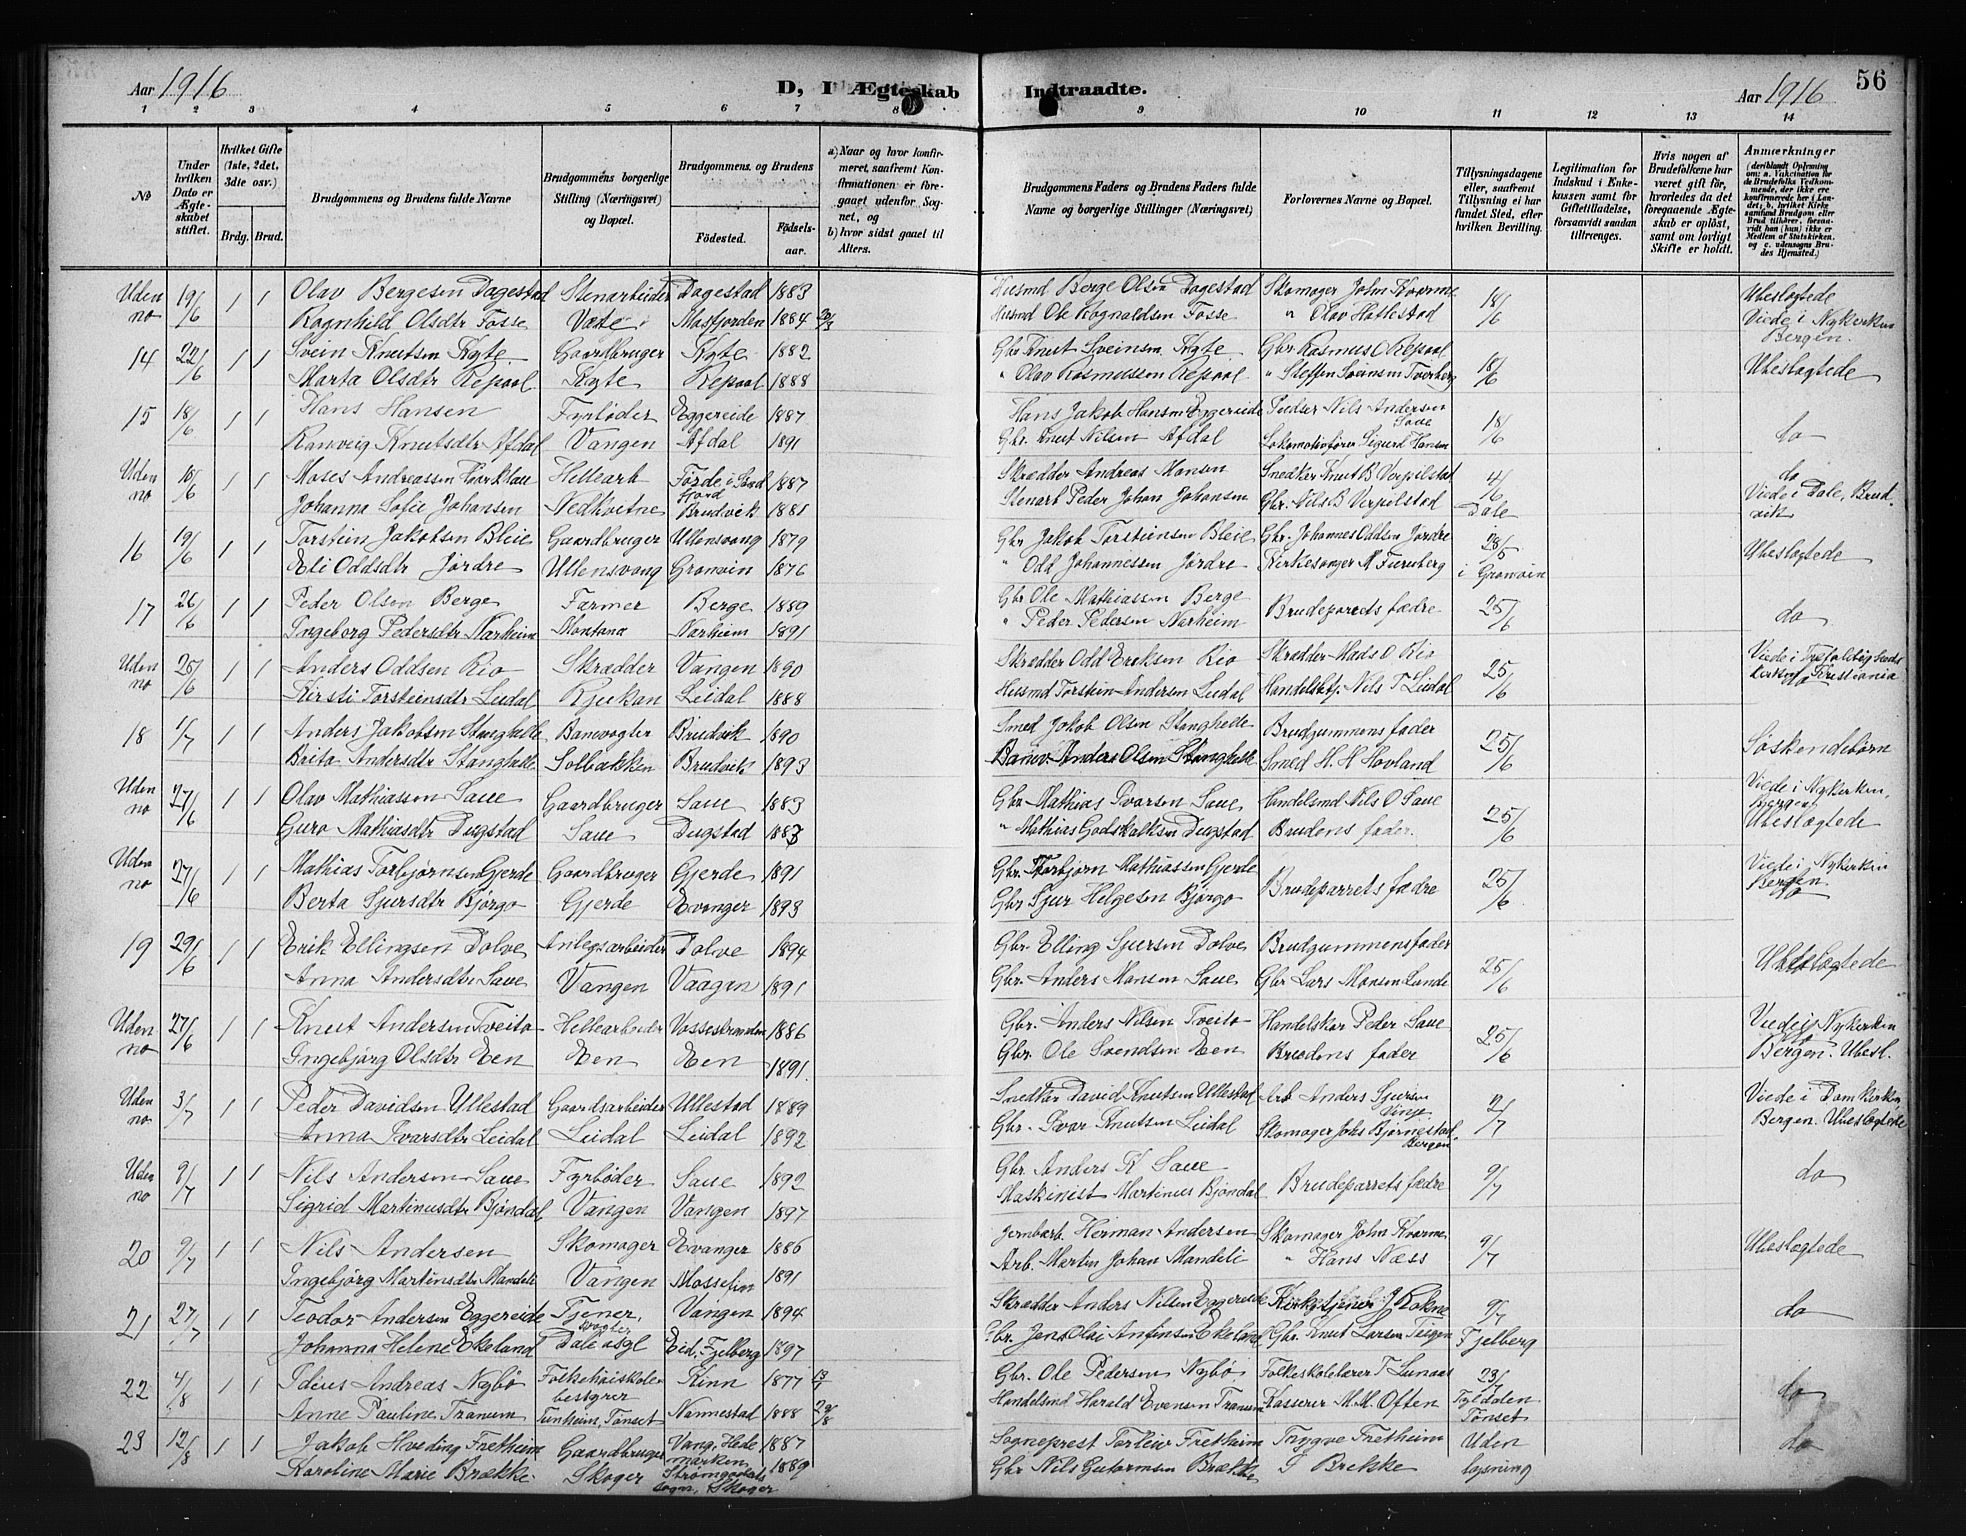 Aar 1916 D, I Ægteskab Indtraadte. Aar 1916 56
1 2 3 4 5 6 7 8 9 10 11 12 13 14
No
Under hvilken Dato er Ægteskabet stiftet.
Hvilket Gifte (1ste, 2det, 3die osv.)
Brdg. Brud.
Brudgommens og Brudens fulde Navne
Brudgommens borgerlige Stilling (Næringsvei) og Bopæl.
Brudgommens og Brudens
Fødested. Fødselsaar.
a) Naar og hvor konfirmeret, saafremt Konfirmationen er foregaaet udenfor Sognet, og
b) hvor sidst gaaet til Alters.
Brudgommens Faders og Brudens Faders fulde Navne og borgerlige Stillinger (Næringsvei)
Forlovernes Navne og Bopæl.
Tillysningsdagene eller, saafremt Tillysning ei har fundet Sted, efter hvilken Bevilling.
Legitimation for Indskud i Enkekassen samt for Giftetilladelse, forsaavidt saadan tiltrænges.
Hvis nogen af Brudefolkene har været gift før, hvorledes da det foregaaende Ægteskab er opløst, samt om lovligt Skifte er holdt.
Anmærkninger
(deriblandt Oplysning om: a. Vakcination for de Brudefolks Vedkommende, der ikke ere konfirmerede her i Landet; b. hvilket Kirkesamfund Brudgom eller Brud tilhører, forsaavidt han (hun) ikke er Medlem af Statskirken, og c. udensogns Brudes Hjemsted.)
Uden no 19/6 1 1 Olav Bergesen Dagestad Stenarbeider Dagestad 1883 Husmd Berge Olsen Dagestad Skomager John Kvarme 18/6 Ubeslægtede
Ragnhild Olsdtr Fosse Væte Masfjorden 1884 Husmd Ole Ragnaldsen Fosse " Olav Hattestad Viede i Nykirken Bergen.
14 22/6 1 1 Svein Knutsen Kyte Gaardbruger Kyte 1882 Gbr Knut Sveinsen Kyte Gbr Rasmus O Repaal 18/6 Ubeslægtede
Marta Olsdtr Repaal Kyte Repaal 1888 " Olav Rasmussen Repaal " Steffen Sveinsen Tverberg
15 18/6 1 1 Hans Hansen Fyrbøder Eggereide 1887 Hans Jakob Hansen Eggereide Pudser Nils Andersen Saue 18/6 do
Ranveig Knutsdtr Afdal Vangen Afdal 1891 Gbr. Knut Nilsen Afdal Lokomotivfører Sigurd Hansen
Uden no 10/6 1 1 Moses Andreassen Hellearb Førde i Søndfjord 1887 Skrædder Andreas Monsen Snedker Knut B Verpelstad 4/6 do
Johanna Sofie Johansen Nedkvitne Brudvik 1881 Stenarb Peder Johan Johansen Gbr. Nils B Verpelstad Dale Viede i Dale, Brudvik
16 19/6 1 1 Torstein Jakobsen Bleie Gaardbruger Ullensvang 1879 Gbr Jakob Torsteinsen Bleie Gbr. Johannes Oddsen Jørdre 28/5 Ubeslægtede
Eli Oddsdtr Jørdre Ullensvang Granvin 1876 " Odd Johannessen Jørdre Kirkesanger M Furuberg i Granvin
17 26/6 1 1 Peder Olsen Berge Farmer Berge 1889 Gbr Ole Mathiassen Berge Brudeparrets fædre 25/6 do
Ingeborg Pedersdtr Nærheim Montana Nærheim 1891 " Peder Pedersen Nærheim
Uden no 25/6 1 1 Anders Oddsen Rio Skrædder Vangen 1890 Skrædder Odd Eriksen Rio Skrædder Mads O Rio 25/6 Viede i Trefoldighedskirken Kristiania
Kirsti Torsteinsdtr Leidal Rjukan Leidal 1888 Husmd Torstein Andersen Leidal Handelsbetj. Nils T Leidal do
18 1/7 1 1 Anders Jakobsen Stanghelle Banevogter Brudvik 1890 Smed Jakob Olsen Stanghelle Brudgummens fader 25/6 Søskendebørn
Brita Andersdtr Stanghelle Solbakken Brudvik 1893 Banev. Anders Olsen Stanghelle Smed H. H Hovland
Uden no 27/6 1 1 Olav Mathiassen Saue Gaardbruger Saue 1883 Gbr Mathias Ivarsen Saue Handelsmd Nils O Saue 25/6 Viede i Nykirken, Bergen
Guro Mathiasdtr Dugstad Saue Dugstad 1883 " Mathias Godskalksen Dugstad Brudens fader. Ubeslægtede
Uden no 27/6 1 1 Mathias Torbjørnsen Gjerde Gaardbruger Gjerde 1891 Gbr. Thorbjørn Mathiassen Gjerde Brudeparrets fædre 25/6 Viede i Nykirken Bergen
Berta Sjursdtr Bjørgo Gjerde Evanger 1893 Gbr Sjur Helgesen Bjørgo do
19 29/6 1 1 Erik Ellingsen Dolve Anlegsarbeider Dolve 1894 Gbr. Elling Sjursen Dolve Brudgummens fader 25/6 Ubeslægtede
Anna Andersdtr Saue Vangen Vaagen 1891 Gbr. Anders Monsen Saue Gbr Lars Monsen Lunde
Uden no 27/6 1 1 Knut Andersen Tveito Hellearbeider Vossestranden 1886 Gbr. Anders Nilsen Tveito Handelskar Peder Saue 25/6 Viede i Nykirken
Ingebjørg Olsdtr Een Een Een 1891. Gbr. Ole Svendsen Een Brudens fader Bergen. Ubesl.
Uden no 3/7 1 1 Peder Davidsen Ullestad Gaardsarbeider Ullestad 1889 Snedker David Knutsen Ullestad Arb Anders Sjursen Vinje 2/7 Viede i Domkirken
Anna Ivarsdtr Leidal Leidal Leidal 1892 Gbr. Ivar Knutsen Leidal Skomager Johs Bjørnestad, Bergen Bergen. Ubeslægtede
Uden no 9/7 1 1 Nils Andersen Saue Fyrbøder Saue 1892 Gbr. Anders K Saue Brudeparrets fædre 9/7 do
Sigrid Martinusdtr Bjøndal Vangen Vangen 1897 Maskinist Martinus Bjøndal
20 9/7 1 1 Nils Andersen Skomager Evanger 1886 Jernbarb. Herman Andersen Skomager John Kvarme 9/7 Ubeslægtede
Ingebjørg Martinsdtr Mandeli Vangen 1891 Arb. Martin Johan Mandeli " Hans Næss
21 27/7 1 1 Teodor Andersen Eggereide Tjener Vangen 1894 Skrædder Anders Nilsen Eggereide Kirketjener J Rokne 9/7 do
Johanna Helene Ekeland Dale Eid, Fjelberg 1897 Gbr. Jens Olai Anfinsen Ekeland Gbr. Knut Larsen Teigen Fjelberg
22 4/8 1 1 Andreas Nybø Folkehøiskolebestyrer Kinn 1877 Gbr. Ole Pedersen Nybø Folkeskolelærer T Lunaas 23/7 do
Anne Pauline Tranum Tunheim, Tønset Nannestad 1888 Handelsmd Harald Evensen Tranum Kasserer M. M. Often Tyldalen Tønset
23 12/8 1 1 Jakob Hveding Fretheim Gaardbruger Vang, Hedemarken 1887 Sogneprest Torleiv Fretheim Trygve Fretheim Uden do
Karoline Marie Brække Skoger Strømgodset sogn, Skoger 1889 Gbr Nils Gutormsen Brække T Brekke lysning